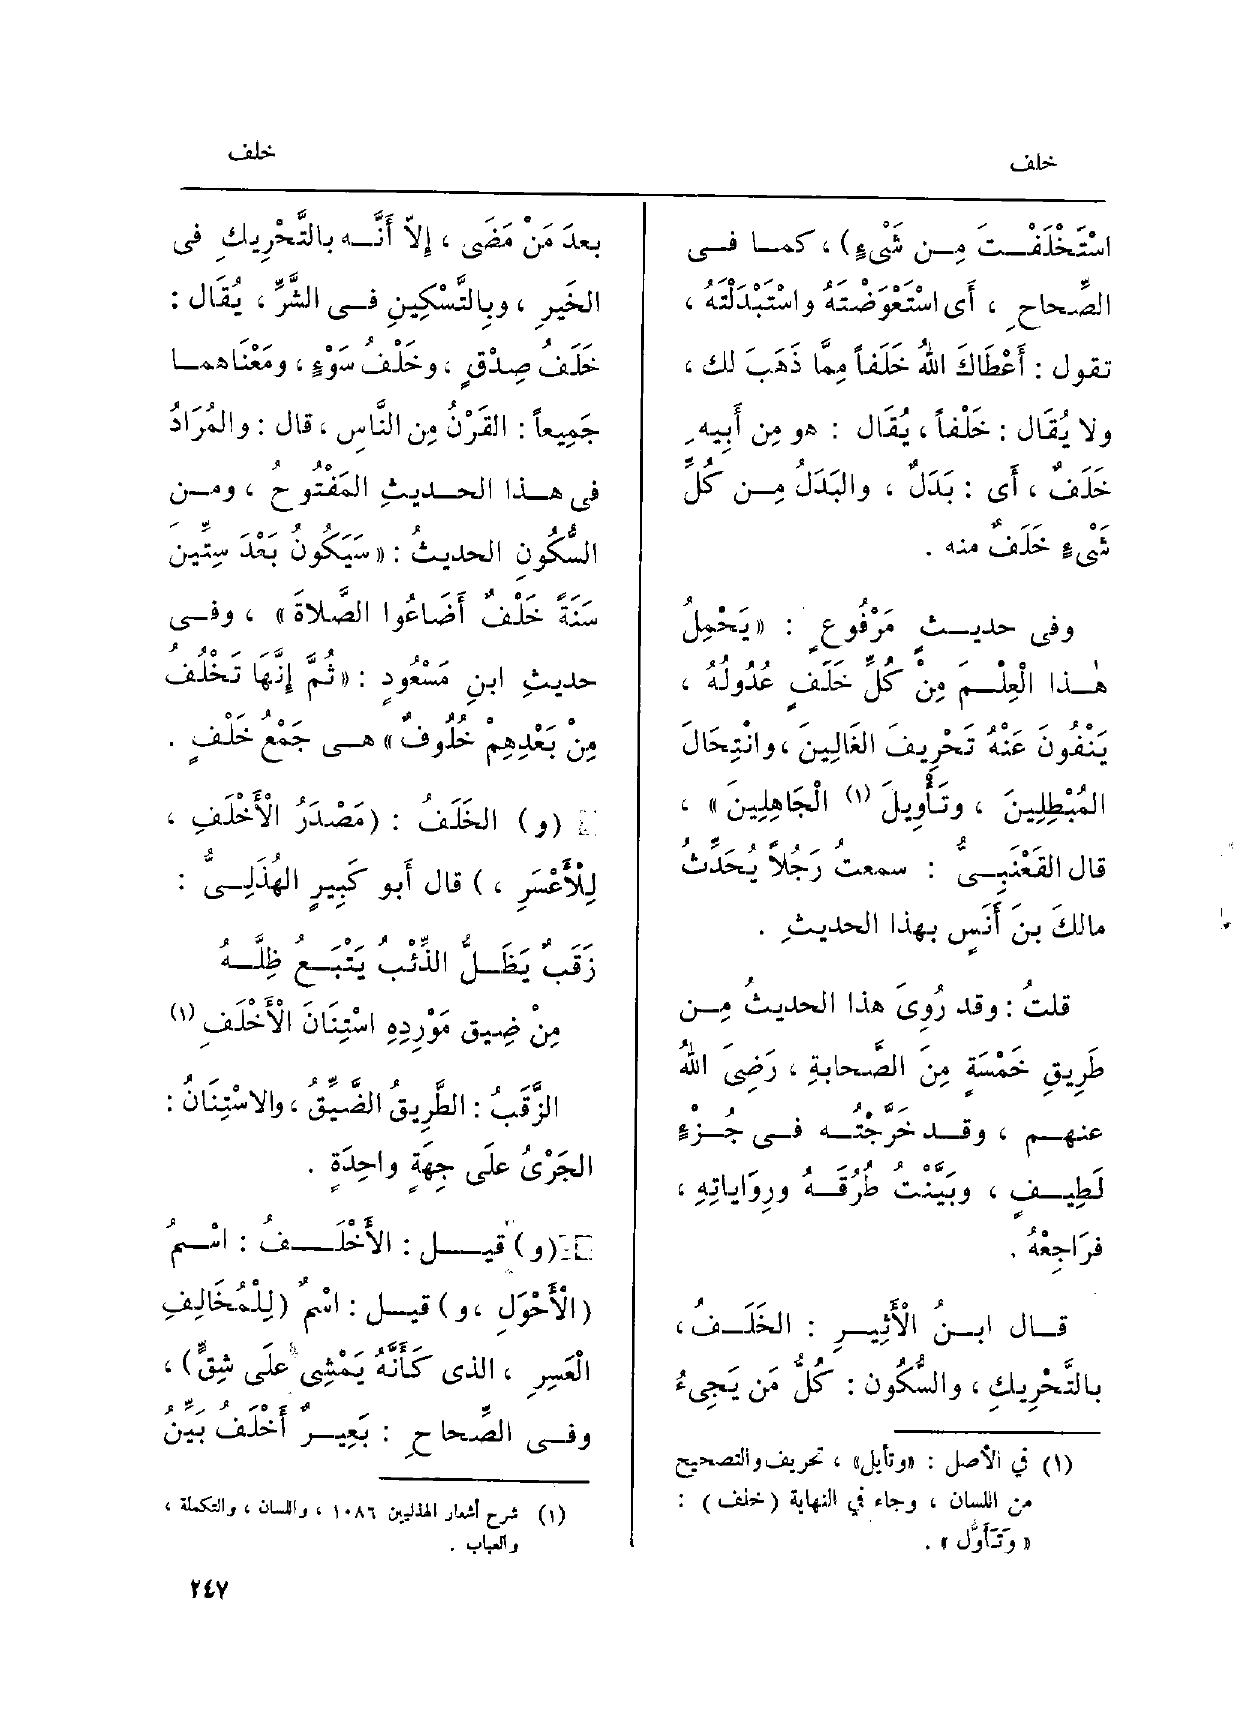 خلف
خلف
اسْتَخْلَفْتَ مِن شَيْءٍ) ، كما فى
الصِّحاحِ ، أَى اسْتَعْوَضْتَهُ واسْتَبْدَلْتَهُ ،
تقول : أَعْطَاكَ اللهُ خَلَفاً مِمَّا ذَهَبَ لك ،
ولا يُقَال : خَلْفاً ، يُقَال : هو مِن أَبِيهِ
خَلَفٌ ، أَى : بَدَلٌ ، والبَدَلُ مِن كُلِّ
شَىْءٍ خَلَفٌ منه .
وفى حديثٍ مَرْفُوعٍ : « يَحْمِلُ
هٰذا الْعِلْمَ مِنْ كُلِّ خَلَفٍ عُدُولُهُ ،
يَنْفُونَ عَنْهُ تَحْرِيفَ الغَالِينَ ، وانْتِحَالَ
المُبْطِلِينَ ، وتَأْوِيلَ (١) الْجَاهِلِينَ » ،
قال القَعْنَبِىُّ : سمعتُ رَجُلاً يُحَدِّثُ
مالكَ بنَ أَنَسٍ بهذا الحديثِ .
قلتُ : وقد رُوِىَ هذا الحديثُ مِن
طَرِيقِ خَمْسَةٍ مِنَ الصَّحابةِ ، رَضِىَ اللهُ
عنهم ، وقد خَرَّجْتُه فى جُزْءٍ
لَطِيفٍ ، وبَيَّنْتُ طُرُقَهُ ورِوَاياتِهِ ،
فرَاجِعْهُ .
قال ابنُ الْأَثِيرِ : الخَلَفُ ،
بالتَّحْرِيكِ ، والسُّكُون : كُلُّ مَن يَجِىءُ
(١) في الأصل : «وتأيل» ، تحريف والتصحيح
من اللسان ، وجاء في النهاية ( خلف ) :
« وتَأَوُّل » .
بعدَ مَنْ مَضَى ، إِلاَّ أَنَّه بالتَّحْرِيكِ فى
الخَيرِ ، وبِالتَّسْكِينِ فى الشَّرِّ ، يُقَال :
خَلَفُ صِدْقٍ ، وخَلْفُ سَوْءٍ ، ومَعْنَاهما
جَمِيعاً : القَرْنُ مِن النَّاسِ ، قال : والمُرَادُ
فى هذا الحديثِ المَفْتُوحُ ، ومن
السُّكُونِ الحديثُ : « سَيَكُونُ بَعْدَ سِتِّينَ
سَنَةً خَلْفٌ أَضَاعُوا الصَّلاةَ » ، وفى
حديثِ ابنِ مَسْعُودٍ : « ثُمَّ إِنَّهَا تَخْلُفُ
مِنْ بَعْدِهِمْ خُلُوفٌ » هى جَمْعُ خَلْفٍ .
(و) الخَلَفُ : (مَصْدَرُ الْأَخْلَفِ ،
لِلْأَعْسَرِ ،) قال أَبو كَبِيرٍ الهُذَلِىُّ :
زَقَبٌ يَظَلُّ الذِّئْبُ يَتْبَعُ ظِلَّهُ
مِنْ ضِيقِ مَوْرِدِهِ اسْتِنَانَ الْأَخْلَفِ (١)
الزَّقَبُ : الطَّرِيقُ الضَّيِّقُ ، والاسْتِنَانُ :
الجَرْىُ علَى جِهَةٍ واحِدَةٍ .
(و) قيل : الأَخْلَفُ : اسْمُ
(الْأَحْوَلِ ، و) قيل : اسْمٌ (لِلْمُخَالِفِ
الْعَسِرِ ، الذى كَأَنَّهُ يَمْشِى علَى شِقٍّ) ،
وفى الصِّحاحِ : بَعِيرٌ أَخْلَفُ بَيِّنُ
(١) شرح أشعار الهذليين ١٠٨٦ ، واللسان ، والتكملة ،
والعباب .
٢٤٧